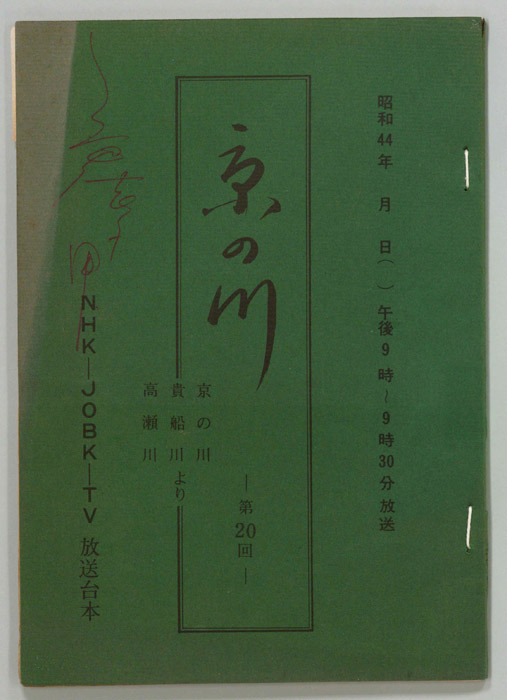 昭和44年 月 日( )午後9時~9時30分放送
京の川
―第20回―
京の川
貴船川より
高瀬川
NHK―JOBK―TV 放送台本